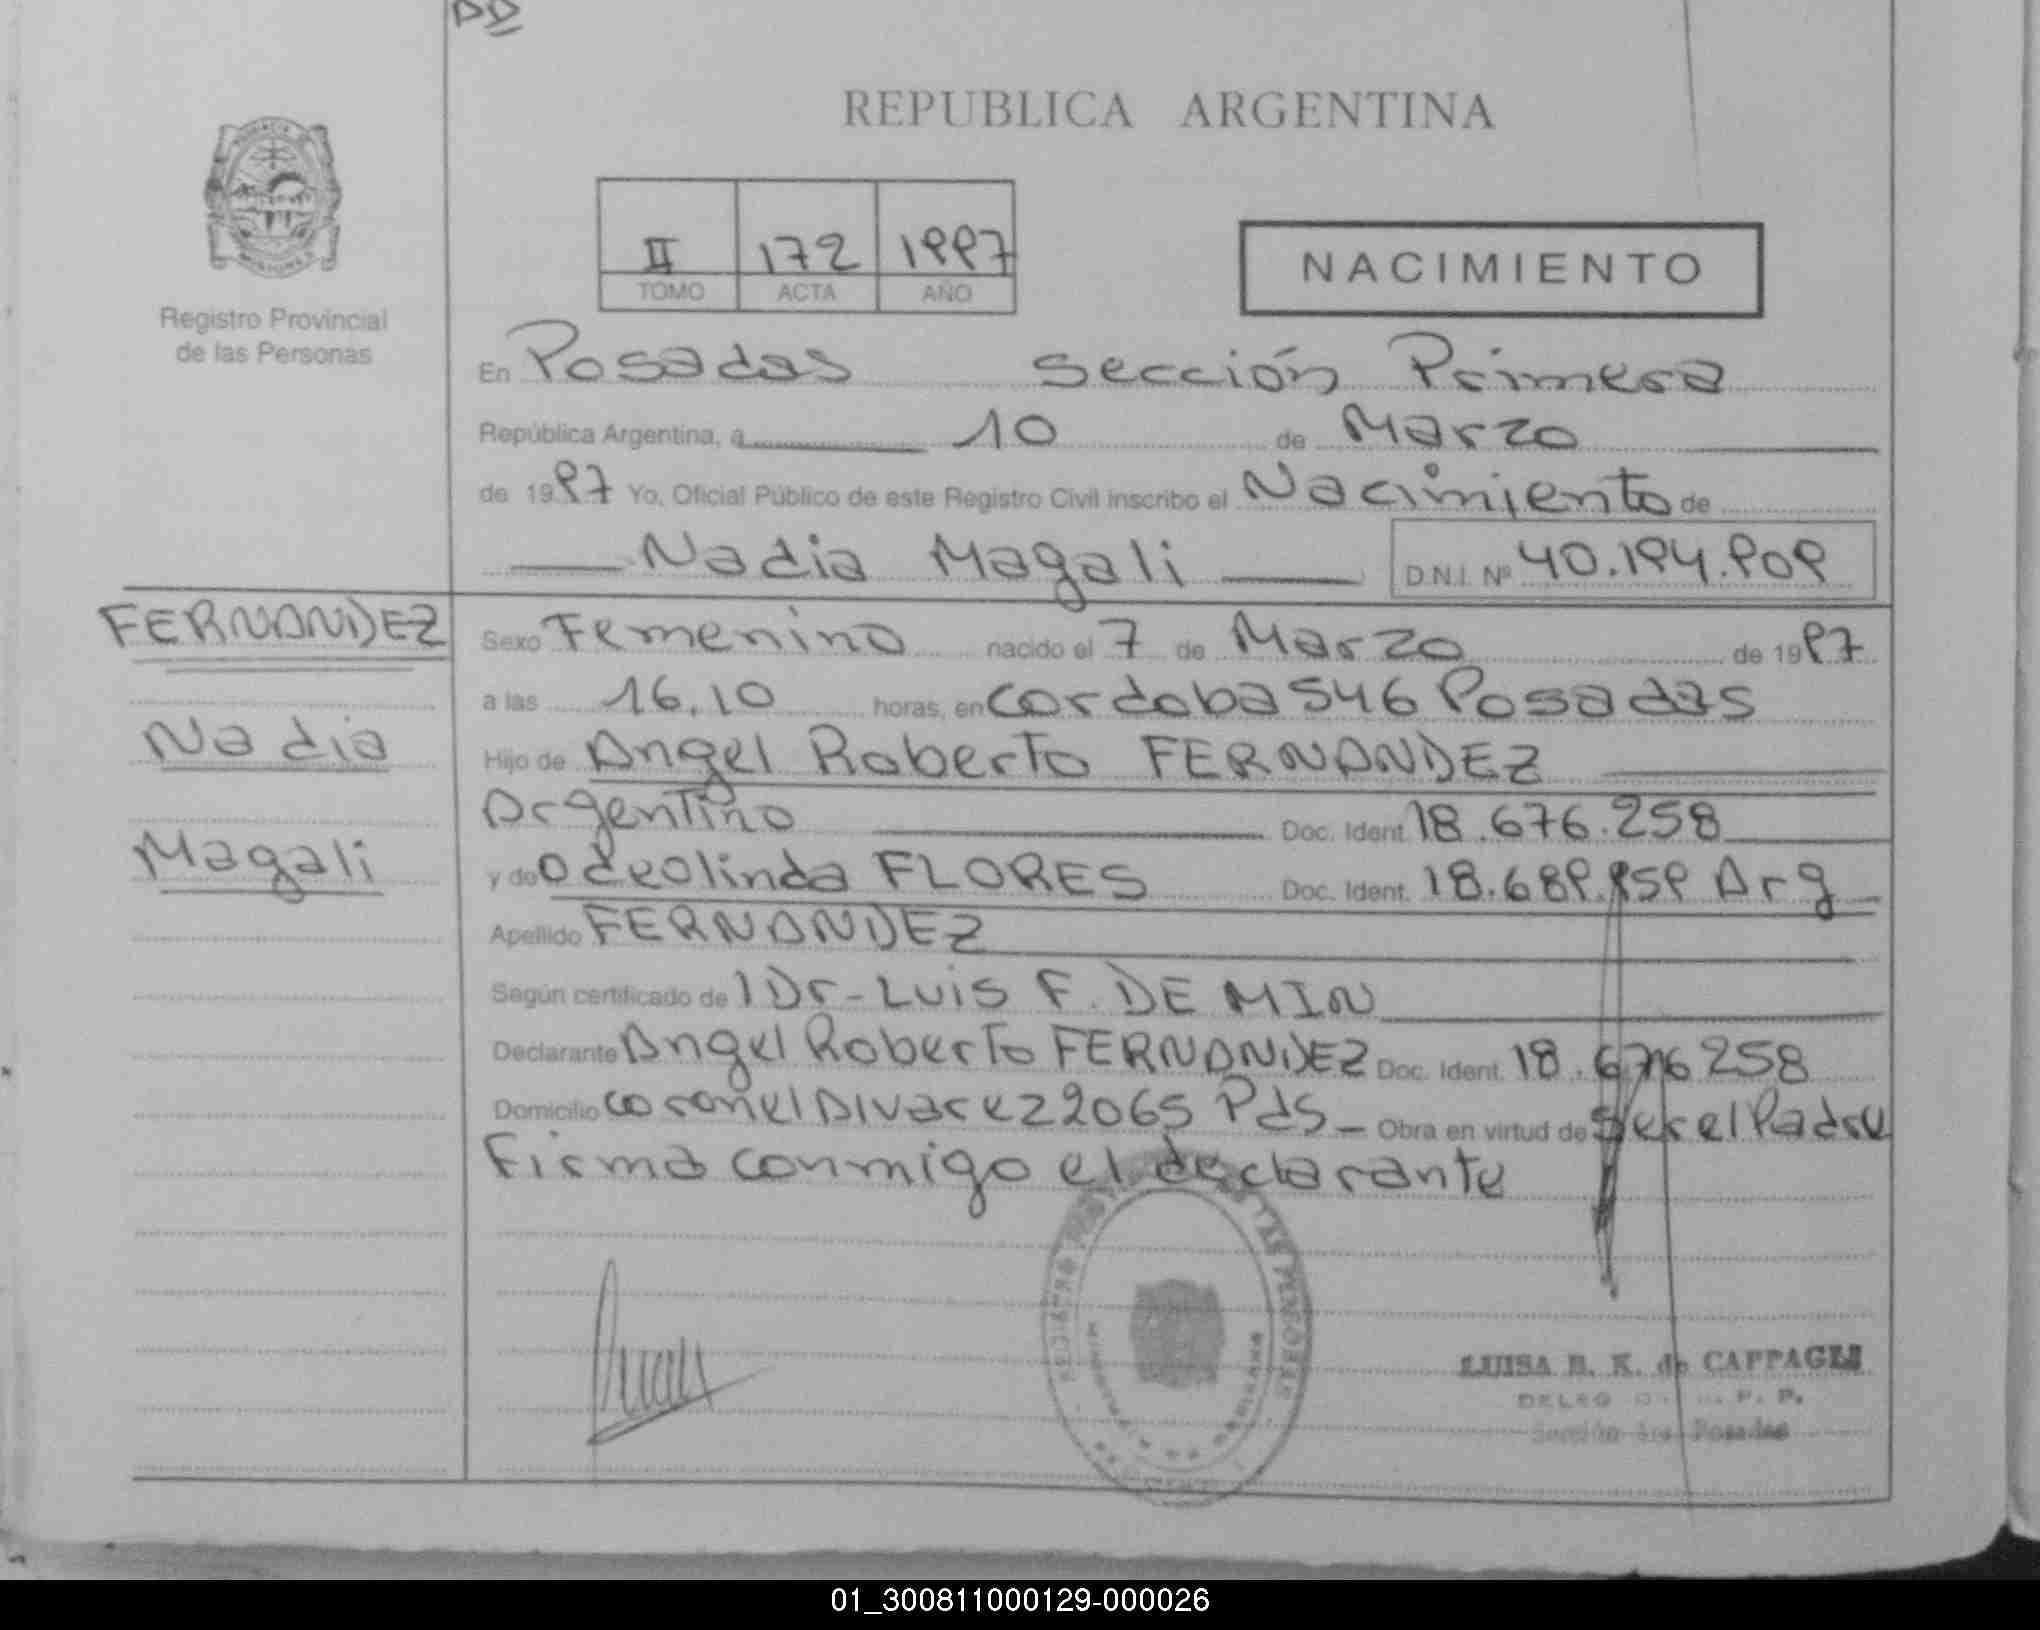 DD
REPUBLICA ARGENTINA
II 172 1997
TOMO ACTA AÑO
NACIMIENTO
Registro Provincial
de las Personas
En Posadas sección Primera
República Argentina, a 10 de Marzo
de 1997 Yo, Oficial Público de este Registro Civil inscribo el Nacimiento de
Nadia Magali D.N.I. Nº 40.194.909
FERNANDEZ
Nadia
Magali
Sexo Femenino nacido el 7 de Marzo de 1997
a las 16.10 horas, en cordoba 546 Posadas
Hijo de Angel Roberto FERNANDEZ
Argentino Doc. Ident. 18.676.258
y de Odeolinda FLORES Doc. Ident. 18.689.959 Arg
Apellido FERNANDEZ
Según certificado de l Dr-Luis F. DE MIN
Declarante Angel Roberto FERNANDEZ Doc. Ident. 18.676258
Domicilio coronel Alvarez 2065 Pds- Obra en virtud de ser el Padre
Firma conmigo el declarante
LUISA B. K. de CAPPAGLI
Sección 1ra Posadas
01_300811000129-000026